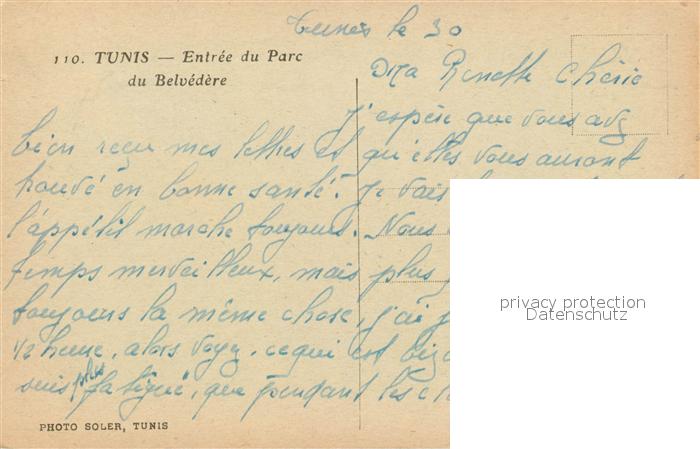 Tunis le 30
110. TUNIS — Entrée du Parc
du Belvédère
Ma Renette Chérie
J'espère que vous avez
bien reçu mes lettres et qu'elles vous auront
trouvé en bonne santé. Je vais
l'appétit marche toujours. Nous
temps merveilleux, mais plus
toujours la même chose, j'ai
1/2 heure, alors voyez. ce qui est
suis plus fatigué, que pendant les
privacy protection
Datenschutz
PHOTO SOLER, TUNIS